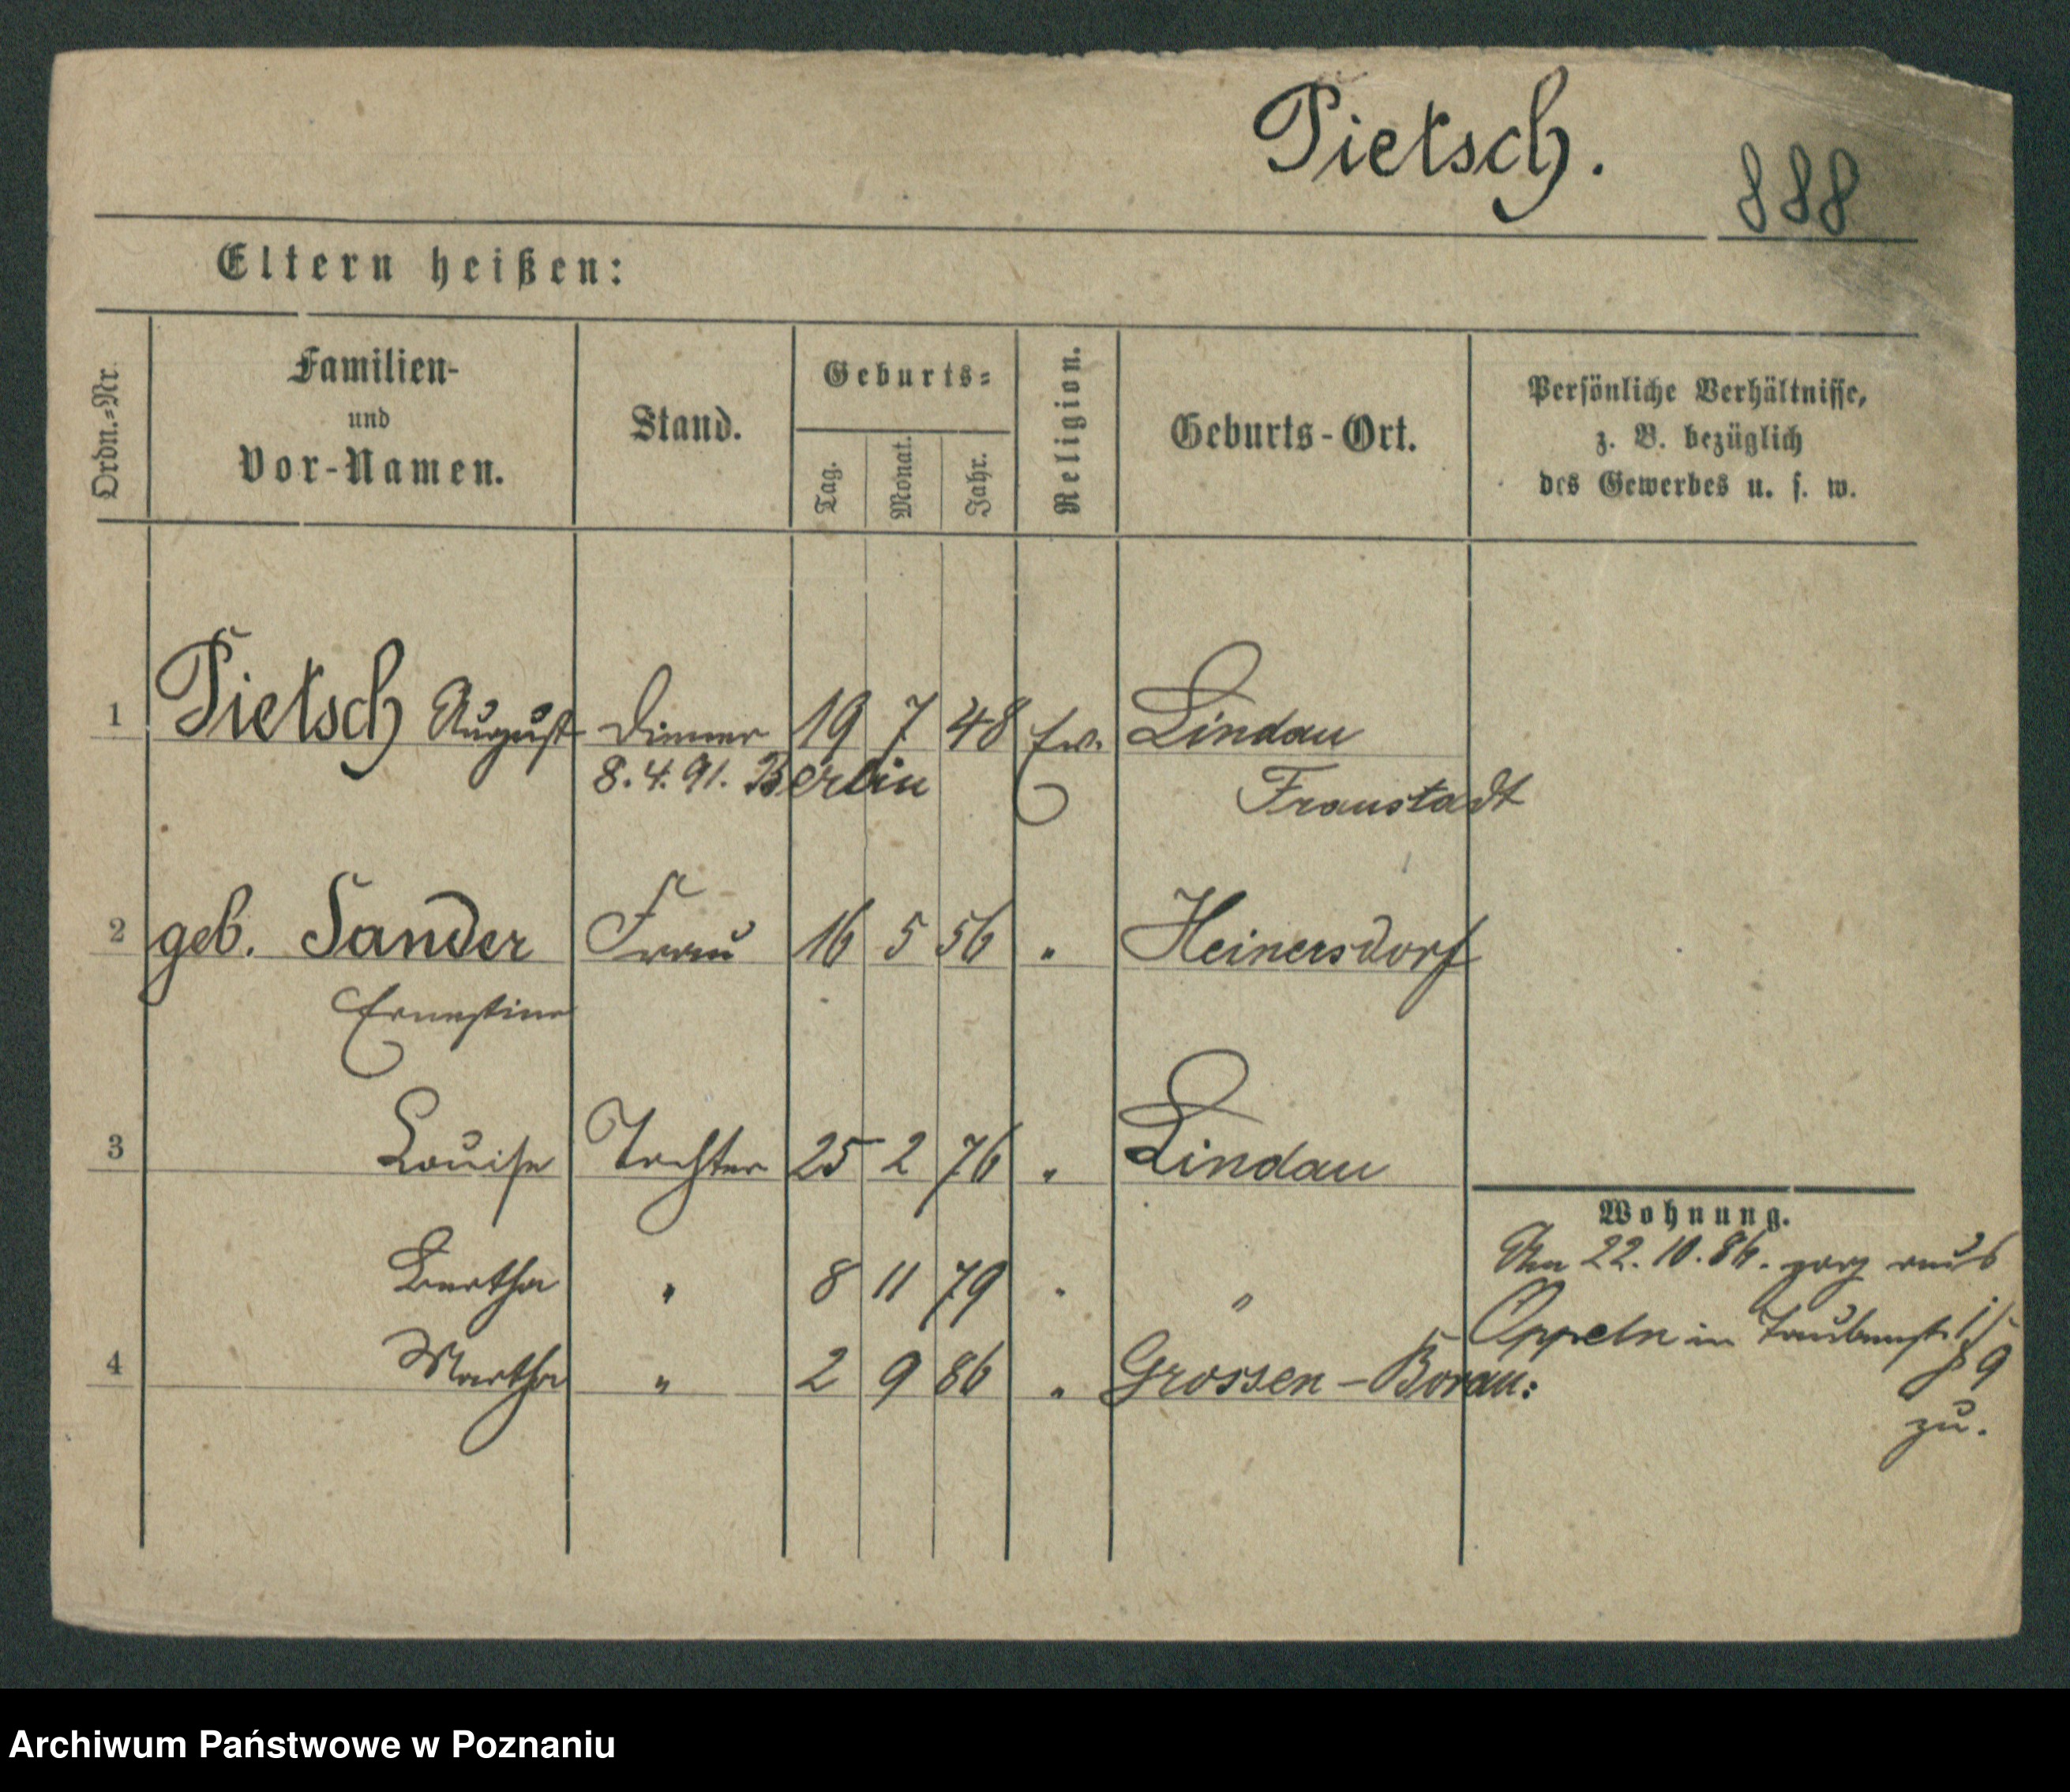 Pietsch.
888
Eltern heißen:
Ordn.-Nr.
Familien-
und
Vor-Namen.
Stand.
Geburts-
Tag.
Monat.
Jahr.
Religion.
Geburts-Ort.
Persönliche Verhältnisse,
z. B. bezüglich
des Gewerbes u. s. w.
1 Pietsch August Diener 19 7 48 ev. Lindau
8.4.91. Berlin Fraustadt
2 geb. Sander Frau 16 5 56 " Heinersdorf
Ernestine
3 Louise Tochter 25 2 76 " Lindau
Wohnung.
Bertha " 8 11 79 " "
Am 22.10.86. zog aus
Oppeln in Taubenstr.
4 Martha " 2 9 86 " Grossen-Borau:
9
zu.
Archiwum Państwowe w Poznaniu